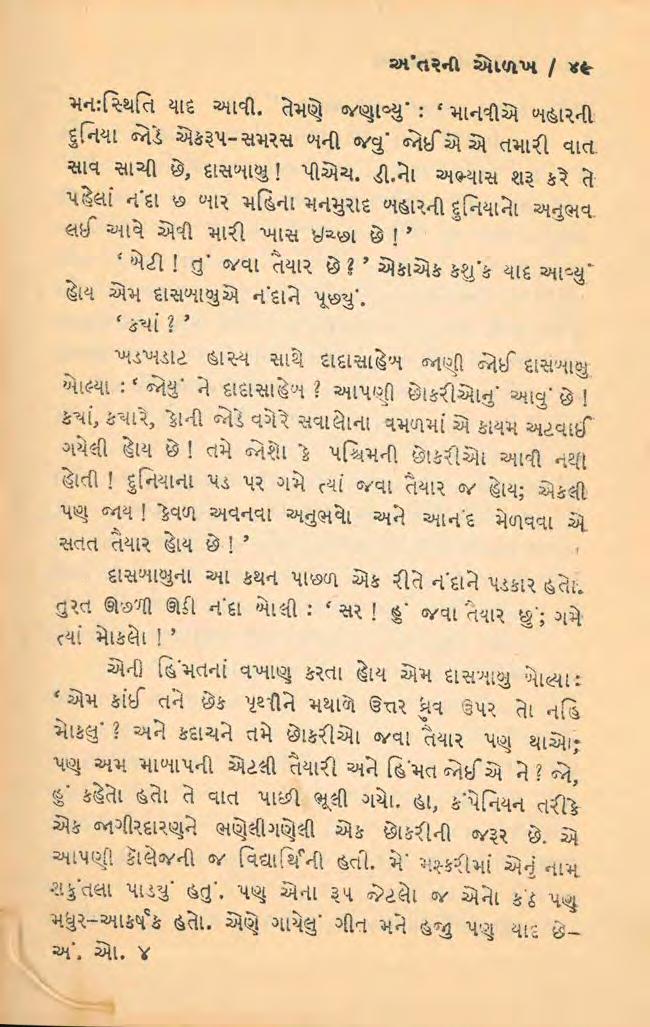 અંતરની ઓળખ / ૪૯
મનઃસ્થિતિ યાદ આવી. તેમણે જણાવ્યું : ‘ માનવીએ બહારની
દુનિયા જોડે એકરૂપ-સમરસ બની જવું જોઈએ એ તમારી વાત
સાવ સાચી છે, દાસબાબુ ! પીએચ. ડી.નો અભ્યાસ શરૂ કરે તે
પહેલાં નંદા છ બાર મહિના મનમુરાદ બહારની દુનિયાનો અનુભવ
લઈ આવે એવી મારી ખાસ ઇચ્છા છે ! ’
‘ બેટી ! તું જવા તૈયાર છે ? ’ એકાએક કશુંક યાદ આવ્યું
હોય એમ દાસબાબુએ નંદાને પૂછ્યું.
‘ કયાં ? ’
ખડખડાટ હાસ્ય સાથે દાદાસાહેબ જાણી જોઈ દાસબાબુ
બોલ્યા : ‘ જોયું ને દાદાસાહેબ ? આપણી છોકરીઓનું આવું છે !
કયાં, કયારે, કોની જોડે વગેરે સવાલોના વમળમાં એ કાયમ અટવાઈ
ગયેલી હોય છે ! તમે જોશો કે પશ્ચિમની છોકરીઓ આવી નથી
હોતી ! દુનિયાના પડ પર ગમે ત્યાં જવા તૈયાર જ હોય; એકલી
પણ જાય ! કેવળ અવનવા અનુભવો અને આનંદ મેળવવા એ
સતત તૈયાર હોય છે ! ’
દાસબાબુના આ કથન પાછળ એક રીતે નંદાને પડકાર હતો.
તુરત ઊછળી ઊઠી નંદા બોલી : ‘ સર ! હું જવા તૈયાર છું; ગમે
ત્યાં મોકલો ! ’
એની હિંમતનાં વખાણ કરતા હોય એમ દાસબાબુ બોલ્યા :
‘ એમ કાંઈ તને છેક પૃથ્વીને મથાળે ઉત્તર ધ્રુવ ઉપર તો નહિ
મોકલું ? અને કદાચને તમે છોકરીઓ જવા તૈયાર પણ થાઓ;
પણ અમ માબાપની એટલી તૈયારી અને હિંમત જોઈએ ને ? જો,
હું કહેતો હતો તે વાત પાછી ભૂલી ગયો. હા, કંપેનિયન તરીકે
એક જાગીરદારણને ભણેલીગણેલી એક છોકરીની જરૂર છે. એ
આપણી કોલેજની જ વિદ્યાર્થિની હતી. મેં મશ્કરીમાં એનું નામ
શકુંતલા પાડયું હતું. પણ એના રૂપ જેટલો જ એનો કંઠ પણ
મધુર-આકર્ષક હતો. એણે ગાયેલું ગીત મને હજી પણ યાદ છે-
અં. ઓ. ૪